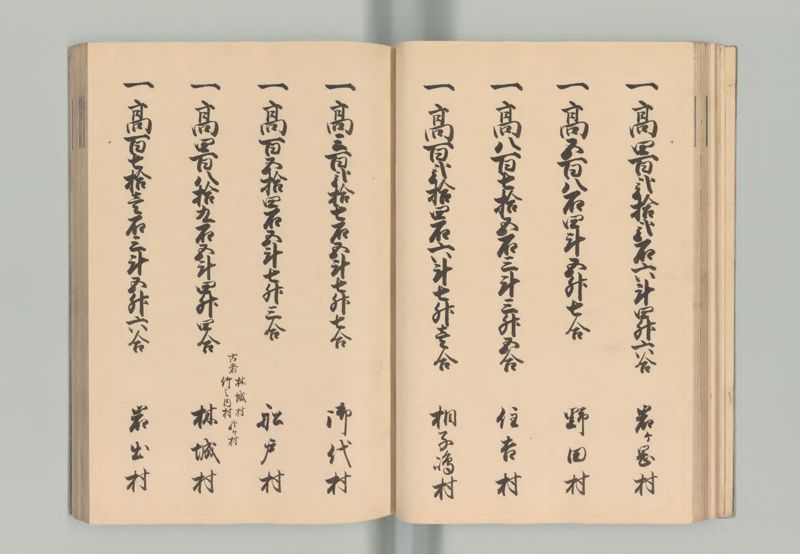 一高四百弐拾弐石六斗四升六合 岩ヶ岡村
一高五百八石四斗五升七合 野田村
一高八百七拾五石三斗三升五合 住吉村
一高百弐拾四石六斗七升壱合 相子嶋村
一高三百弐拾七石五斗七升七合 御代村
一高百五拾四石五斗七升三合 船戸村
古者 林城村
竹之内村 村
一高四百八拾九石五斗四升四合 林城村
一高百七拾壱石三斗五升六合 岩出村